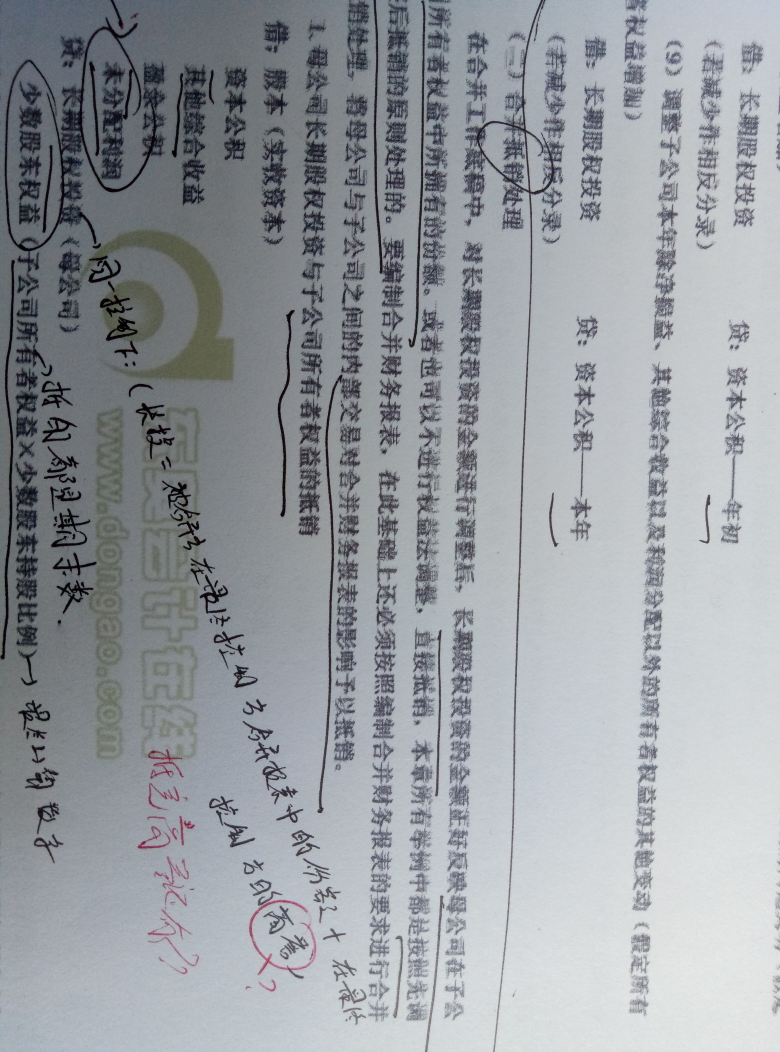 借：长期股权投资
贷：资本公积——年初
（若减少作相反分录）
（9）调整子公司本年除净损益、其他综合收益以及利润分配以外的所有者权益的其他变动（假定所有
者权益增加）
借：长期股权投资
贷：资本公积——本年
（若减少作相反分录）
（二）合并抵销处理
在合并工作底稿中，对长期股权投资的金额进行调整后，长期股权投资的金额正好反映母公司在子公
司所有者权益中所拥有的份额。或者也可以不进行权益法调整，直接抵销，本章所有举例中都是按照先调
后抵销的原则处理的。要编制合并财务报表，在此基础上还必须按照编制合并财务报表的要求进行合并
销处理，将母公司与子公司之间的内部交易对合并财务报表的影响予以抵销。
1.母公司长期股权投资与子公司所有者权益的抵销
借：股本（实收资本）
资本公积
其他综合收益
盈余公积
未分配利润
贷：长期股权投资（母公司）
少数股东权益（子公司所有者权益×少数股东持股比例）
同一控制下：（长投=被合并方在最终控制方合并报表中的份额+在最终
控制方的商誉）？
抵的都是期末数.
最后的数字
东奥会计在线
www.dongao.com